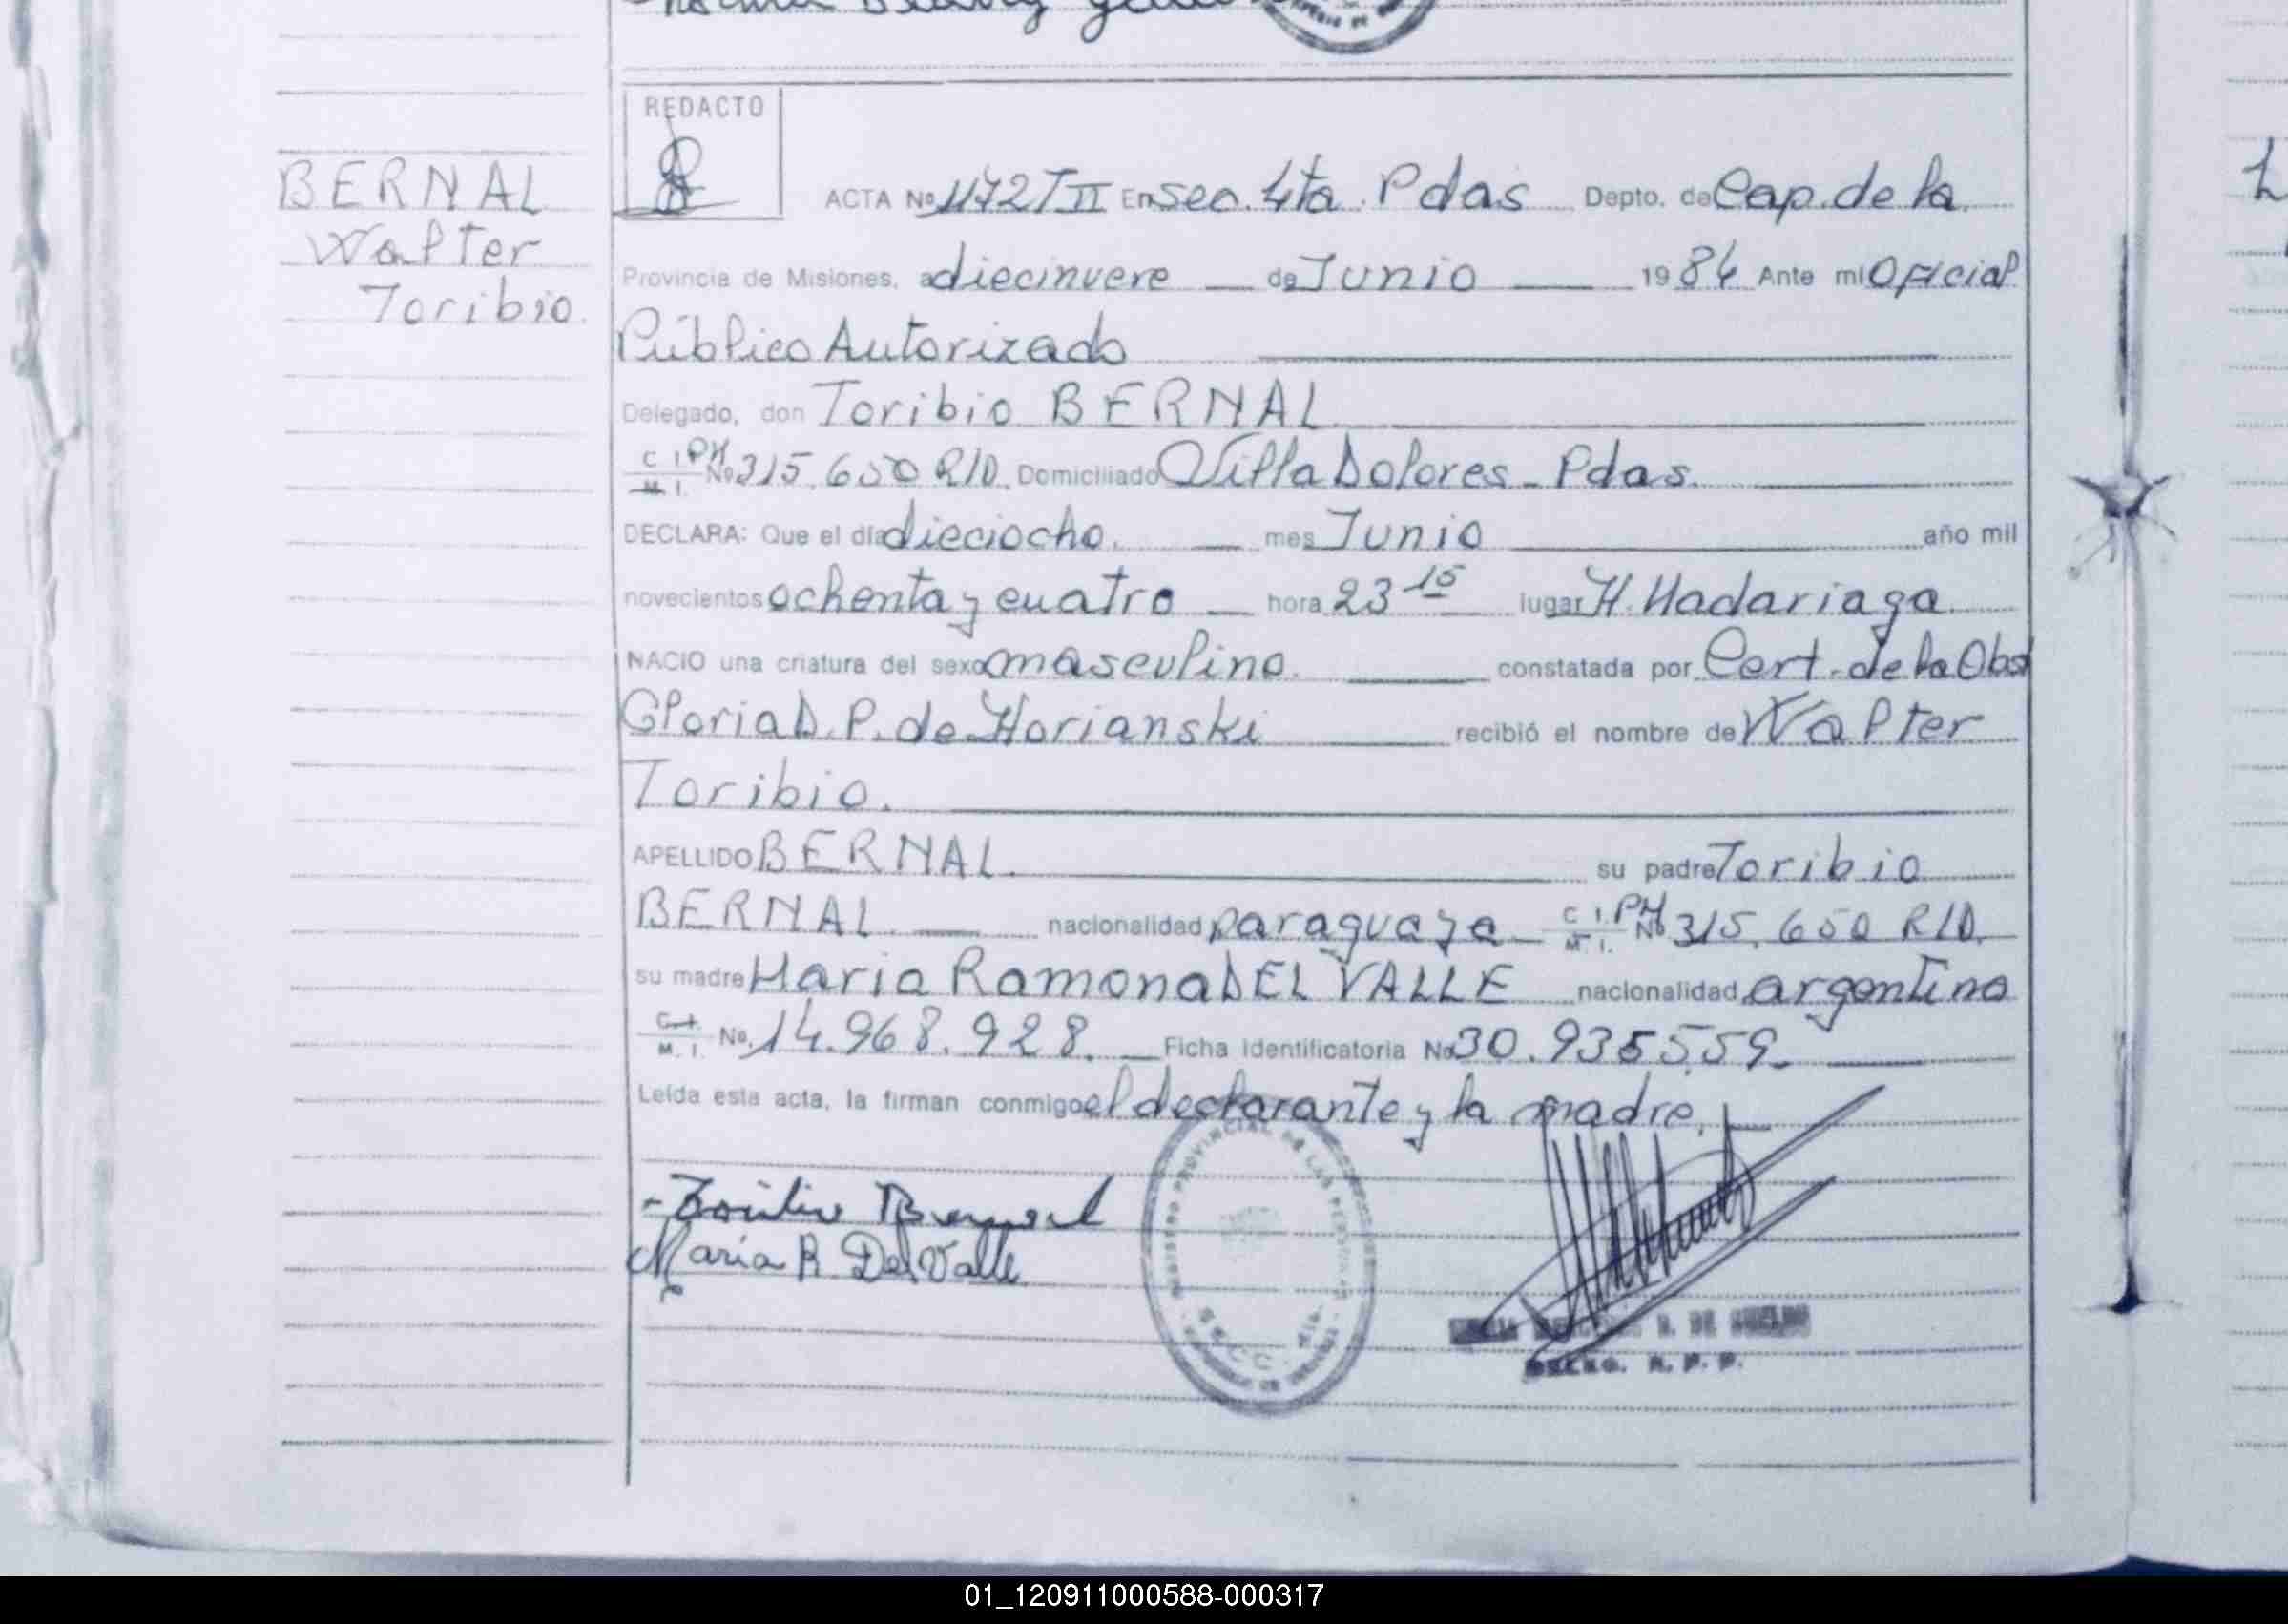 REDACTO
BERNAL
Walter
Toribio.
ACTA No 1172 T II En Sec. 4ta. Pdas Depto. de Cap. de la
Provincia de Misiones, a diecinueve de Junio 1984 Ante mi Oficial
Público Autorizado
Delegado, don Toribio BERNAL
C.I. PM M.I. No 315.650 R/D. Domiciliado Villa Dolores - Pdas.
DECLARA: Que el día dieciocho. mes Junio año mil
novecientos ochenta y cuatro hora 23 15 lugar H. Madariaga
NACIO una criatura del sexo masculino. constatada por Cert. de la Obst
Gloria D. P. de Horianski recibió el nombre de Walter
Toribio.
APELLIDO BERNAL su padre Toribio
BERNAL nacionalidad paraguaya C.I. PM M.I. No 315.650 R/D.
su madre Maria Ramona DEL VALLE nacionalidad argentina
C.I. M.I. No. 14.968.928. Ficha Identificatoria No 30.935.559.
Leída esta acta, la firman conmigo el declarante y la madre.
Toribio Bernal
Maria R Del Valle
REGISTRO PROVINCIAL DE LAS PERSONAS
R. DE
DELEG. R. P. P.
01_120911000588-000317